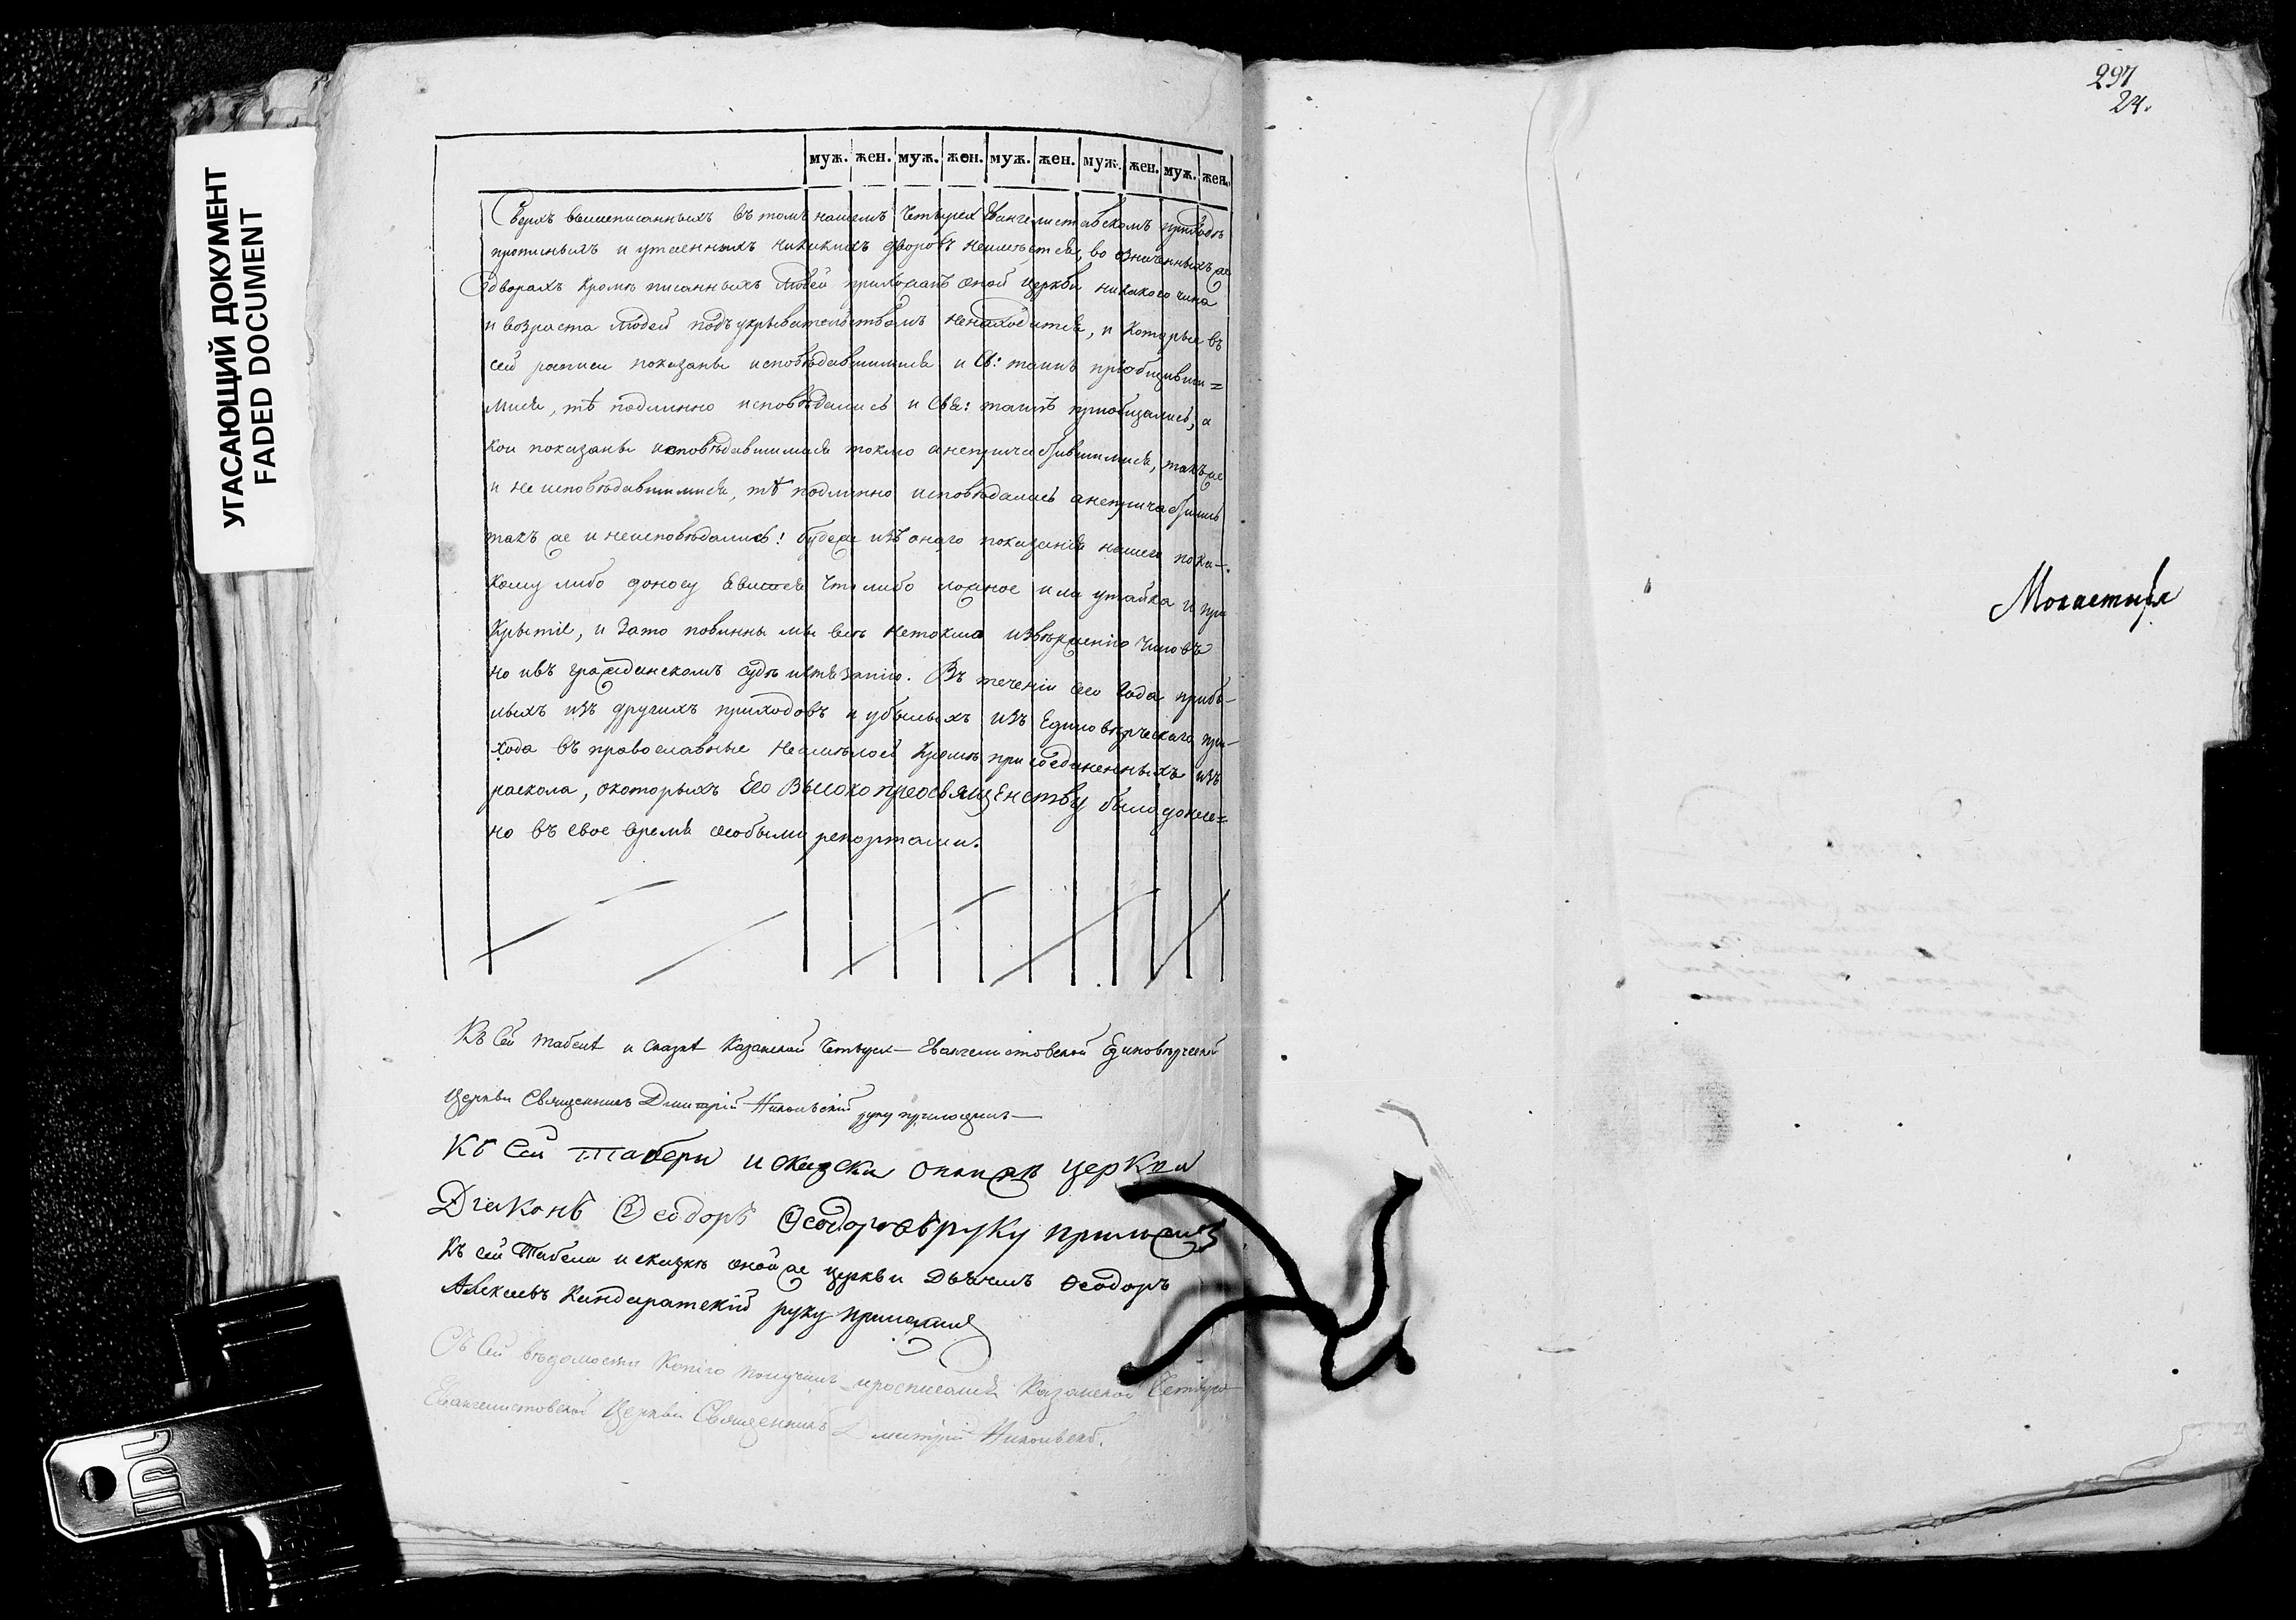 УГАСАЮЩИЙ ДОКУМЕНТ
FADED DOCUMENT
муж. жен. муж. жен. муж. жен. муж. жен. муж. жен.
Сверхъ вышеписанныхъ въ томъ нашемъ Четырех Евангелистовскомъ приходѣ
прописныхъ и утаенныхъ никакихъ дворовъ неимѣется, во означенныхъ же
дворахъ кромѣ писанныхъ людей прихожанъ оной церкви никакого чина
и возраста людей подъ укрывательствомъ ненаходится, и которые въ
сей росписи показаны исповѣдавшимися и Св: таинъ пріобщивши=
мися, тѣ подлинно исповѣдались и Свя: таинъ пріобщались, а
кои показаны исповѣдавшимися токмо а непричастившимися, такъ же
и не исповѣдавшимися, тѣ подлинно исповѣдались а непричастились
такъ же и неисповѣдались! будеже изъ онаго показанія нашего по ка-
кому либо доносу явится что либо ложное или утайка и при
крытіе, и за то повинны мы всѣ нетокмо изверженію чиновъ
но и въ гражданскомъ судѣ истязанію. Въ теченіи сего года прибы-
лыхъ изъ другихъ приходовъ и убылыхъ изъ Единовѣрческаго при-
хода въ православные неимѣлось кромѣ присоединенныхъ изъ
раскола, о которыхъ Его Высокопреосвященству было донесе=
но въ свое время особыми репортами.
Къ сей табели и сказкѣ Казанской Четырех-Евангелистовской Единовѣрческой
церкви Священникъ Дмитрій Никольскій руку приложилъ
Къ сей табери и скаски оныя жъ церкви
Діяконъ Ѳеодоръ Ѳеодоровъ руку приложилъ
Къ сей Табели и сказкѣ оной же церкви Дьячекъ Ѳеодоръ
Алексѣевъ Кандаратскій руку приложилъ
Съ сей вѣдомости копію получилъ и росписался Казанской Четырех-
Евангелистовской Церкви Священникъ Дмитрій Никольскій.
297
24.